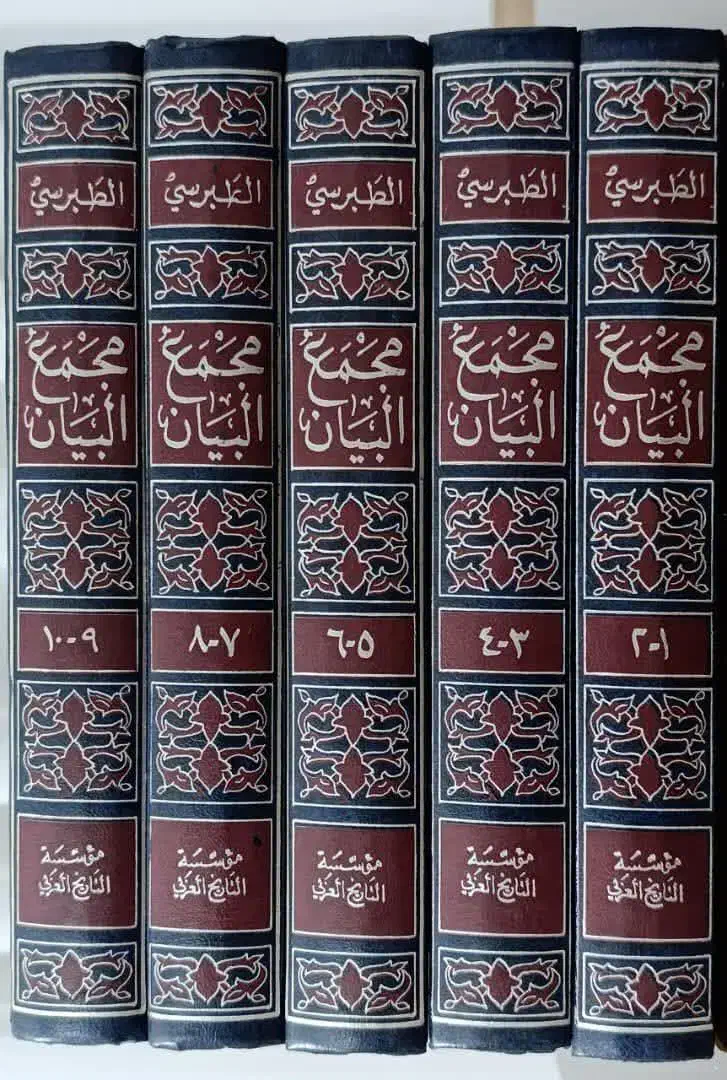 الطبرسي
مجمع
البيان
١-٢
مؤسسة
التاريخ العربي
الطبرسي
مجمع
البيان
٣-٤
مؤسسة
التاريخ العربي
الطبرسي
مجمع
البيان
٥-٦
مؤسسة
التاريخ العربي
الطبرسي
مجمع
البيان
٧-٨
مؤسسة
التاريخ العربي
الطبرسي
مجمع
البيان
٩-١٠
مؤسسة
التاريخ العربي